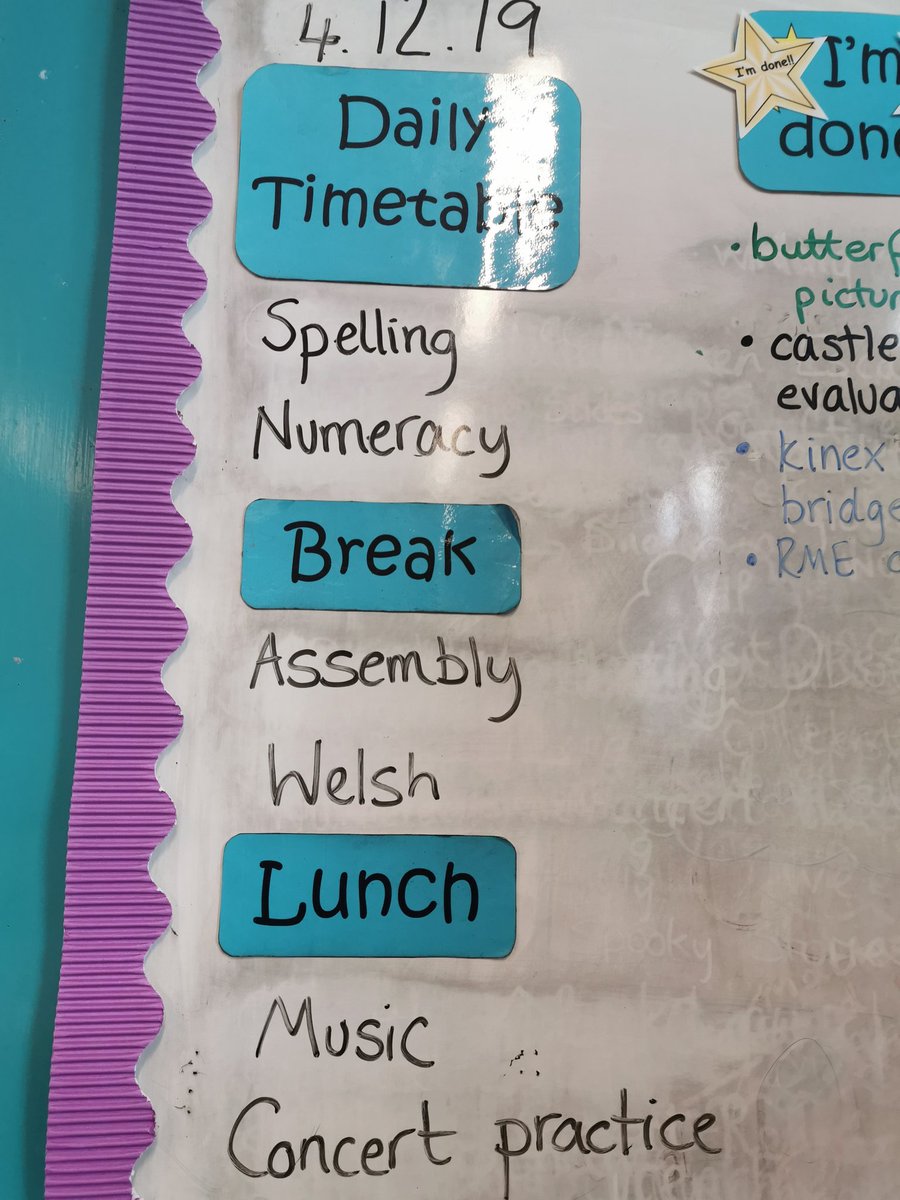 4.12.19
Daily
Timetable
Spelling
Numeracy
Break
Assembly
Welsh
Lunch
Music
Concert practice
I'm done!!
I'm
done
• butterf
pictur
• castle
evalua
• kinex
bridge
• RME